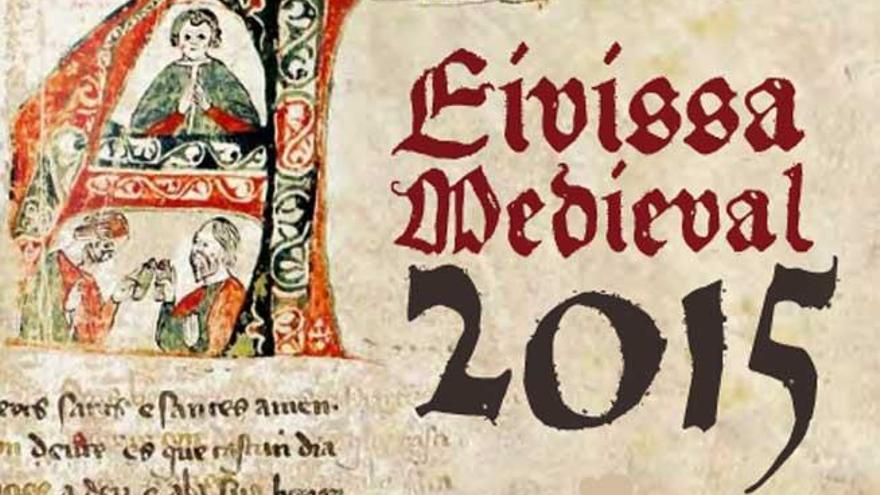 Eivissa
Medieval
2015
sants e santes amen.
es que cascun dia
a deu e a la sua